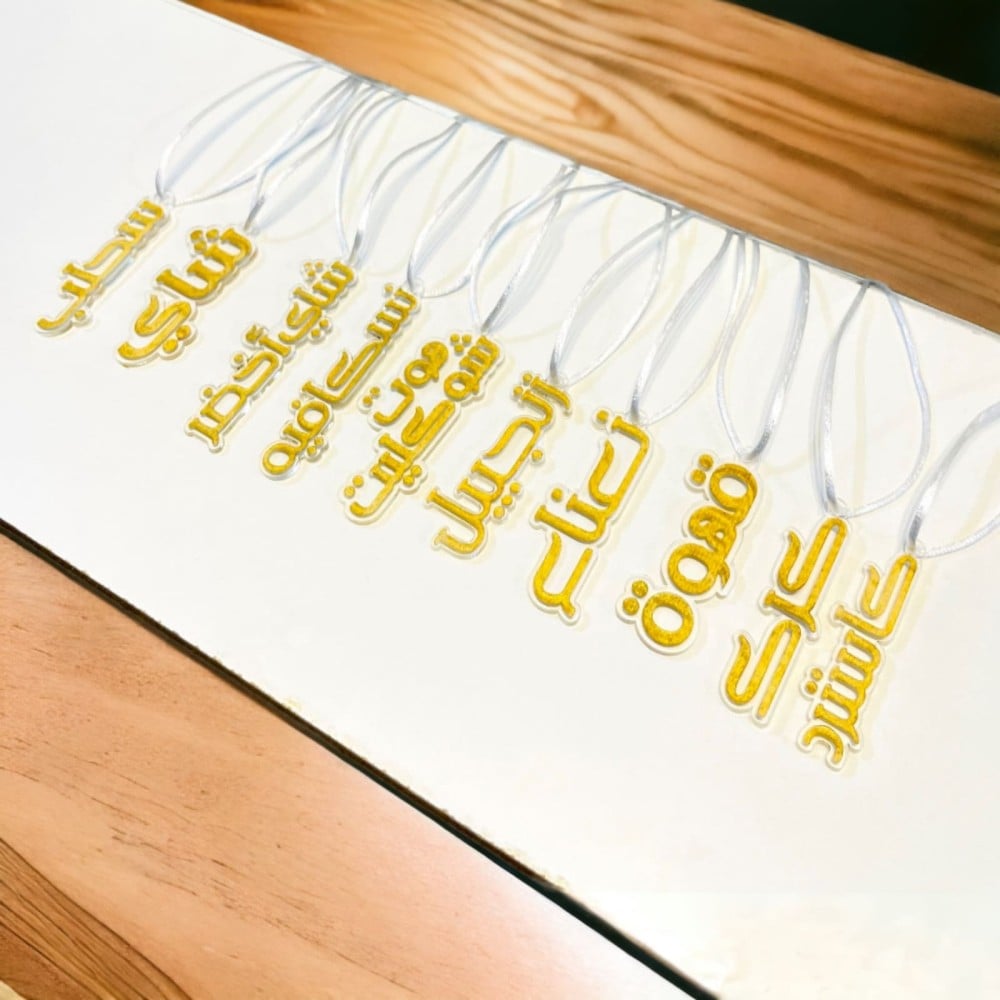 كاسترد
كرك
قهوة
نعناع
زنجبيل
هوت
شوكليت
نسكافيه
شاي أخضر
شاي
سحلب